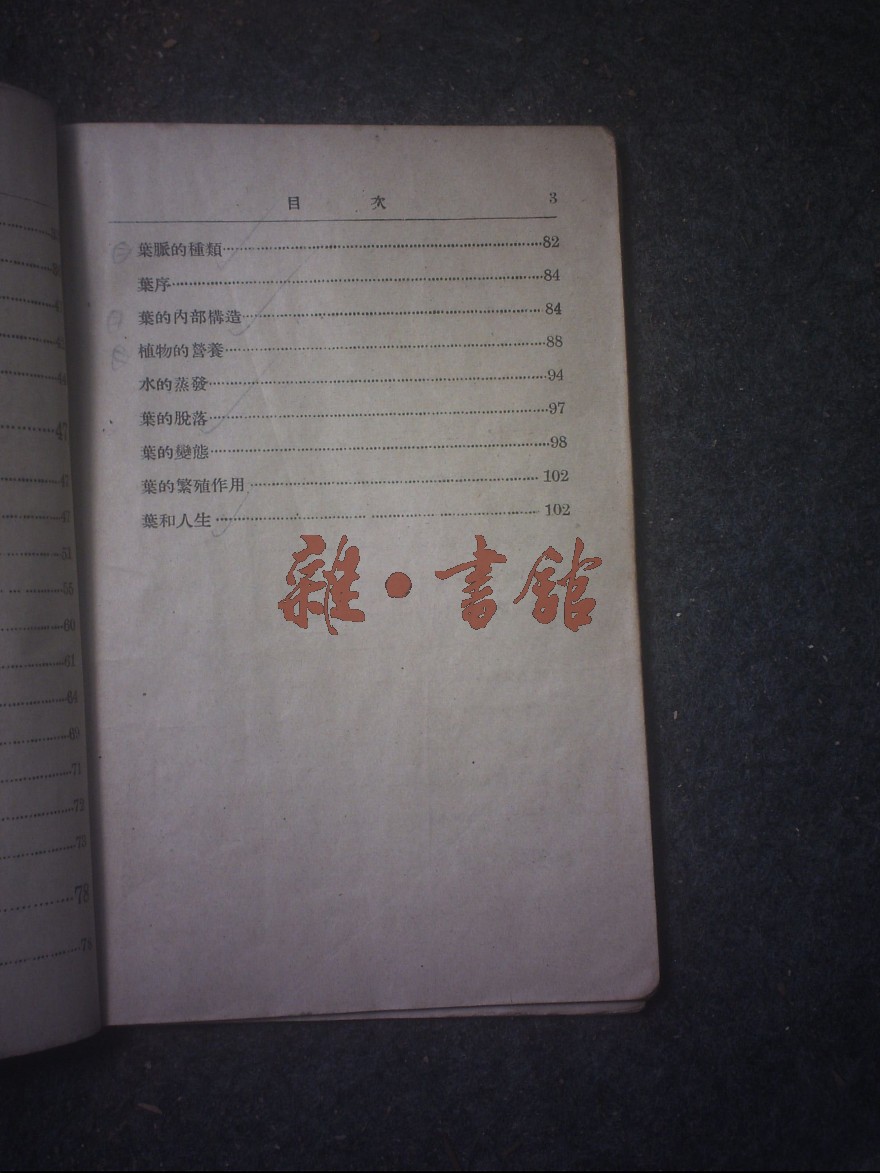 目 次 3
葉脈的種類⋯⋯82
葉序⋯⋯84
葉的內部構造⋯⋯84
植物的營養⋯⋯88
水的蒸發⋯⋯94
葉的脫落⋯⋯97
葉的變態⋯⋯98
葉的繁殖作用⋯⋯102
葉和人生⋯⋯102
雜·書館
47
47
47
51
55
60
61
64
69
71
72
73
78